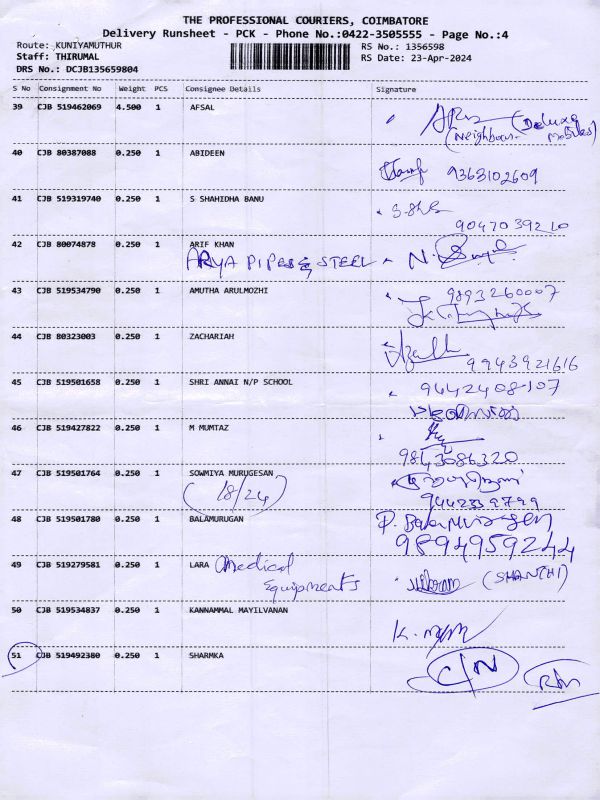 THE PROFESSIONAL COURIERS, COIMBATORE
Delivery Runsheet - PCK - Phone No.:0422-3505555 - Page No.:4
Route: KUNIYAMUTHUR RS No.: 1356598
Staff: THIRUMAL RS Date: 23-Apr-2024
DRS No.: DCJB135659804
S No Consignment No Weight PCS Consignee Details Signature
39 CJB 519462069 4.500 1 AFSAL
(Neighbour- (Deluxe Mobiles)
40 CJB 80387088 0.250 1 ABIDEEN
9363102609
41 CJB 519319740 0.250 1 S SHAHIDHA BANU
9047039210
42 CJB 80074878 0.250 1 ARIF KHAN
ARYA PIPES & STEEL
43 CJB 519534790 0.250 1 AMUTHA ARULMOZHI
9893260007
44 CJB 80323003 0.250 1 ZACHARIAH
9943921616
45 CJB 519501658 0.250 1 SHRI ANNAI N/P SCHOOL
9442408107
46 CJB 519427822 0.250 1 M MUMTAZ
9843086320
47 CJB 519501764 0.250 1 SOWMIYA MURUGESAN
(18/24)
9442339799
48 CJB 519501780 0.250 1 BALAMURUGAN
P. Balamurugan
9894959244
49 CJB 519279581 0.250 1 LARA Medical
Equipments (SHANTHI)
50 CJB 519534837 0.250 1 KANNAMMAL MAYILVANAN
51 CJB 519492380 0.250 1 SHARMKA
C/N